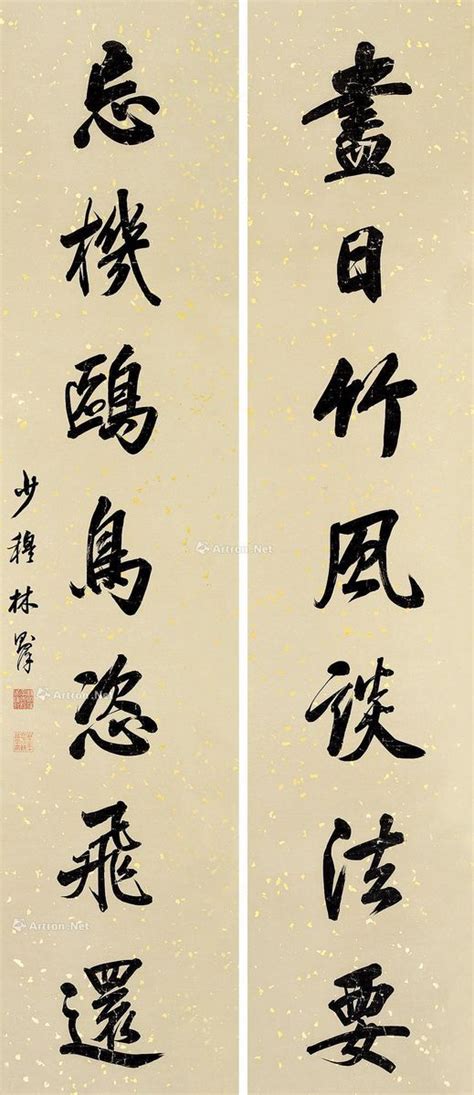 盡日竹風談法要
忘機鷗鳥恣飛還
少穆林則徐
Artron.Net
Artron.Net
Artron.Net